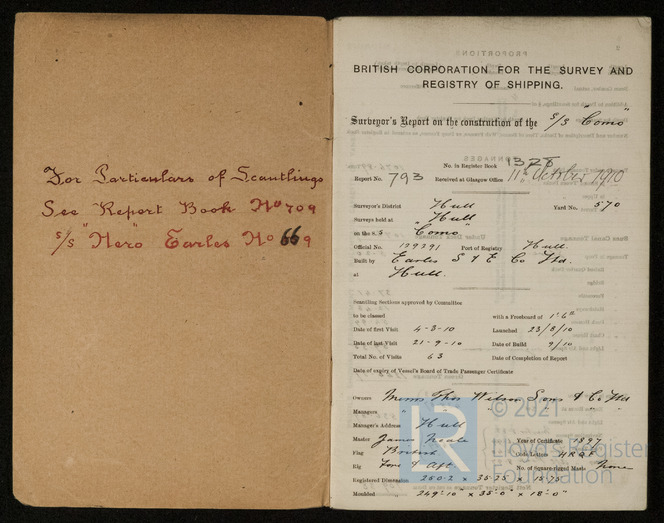 For Particulars of Scantlings
See Report Book No 709
s/s "Hero" Earles No 669
BRITISH CORPORATION FOR THE SURVEY AND
REGISTRY OF SHIPPING.
Surveyor's Report on the construction of the s/s "Como"
No. in Register Book 1328
Report No. 793 Received at Glasgow Office 11th October 1910
Surveyor's District Hull Yard No. 570
Surveys held at Hull
on the S.S "Como"
Official No. 129391 Port of Registry Hull.
Built by Earles S & E Co Ltd.
at Hull.
Scantling Sections approved by Committee
to be classed with a Freeboard of 1'.6"
Date of first Visit 4-3-10 Launched 23/8/10
Date of last Visit 21-9-10 Date of Build 9/10
Total No. of Visits 63 Date of Completion of Report
Date of expiry of Vessel's Board of Trade Passenger Certificate
Owners Messrs Thos Wilson Sons & Co Ltd
Managers " " " "
Manager's Address Hull
Master James Neale Year of Certificate 1897
Flag British Code Letters HRQF
Rig Fore & Aft No. of Square-rigged Masts None
Registered Dimension 250.2 × 35.25 × 15.75
Moulded 249'-10" × 35'-0" × 18'-0"
© 2021
LR
Lloyd's Register
Foundation